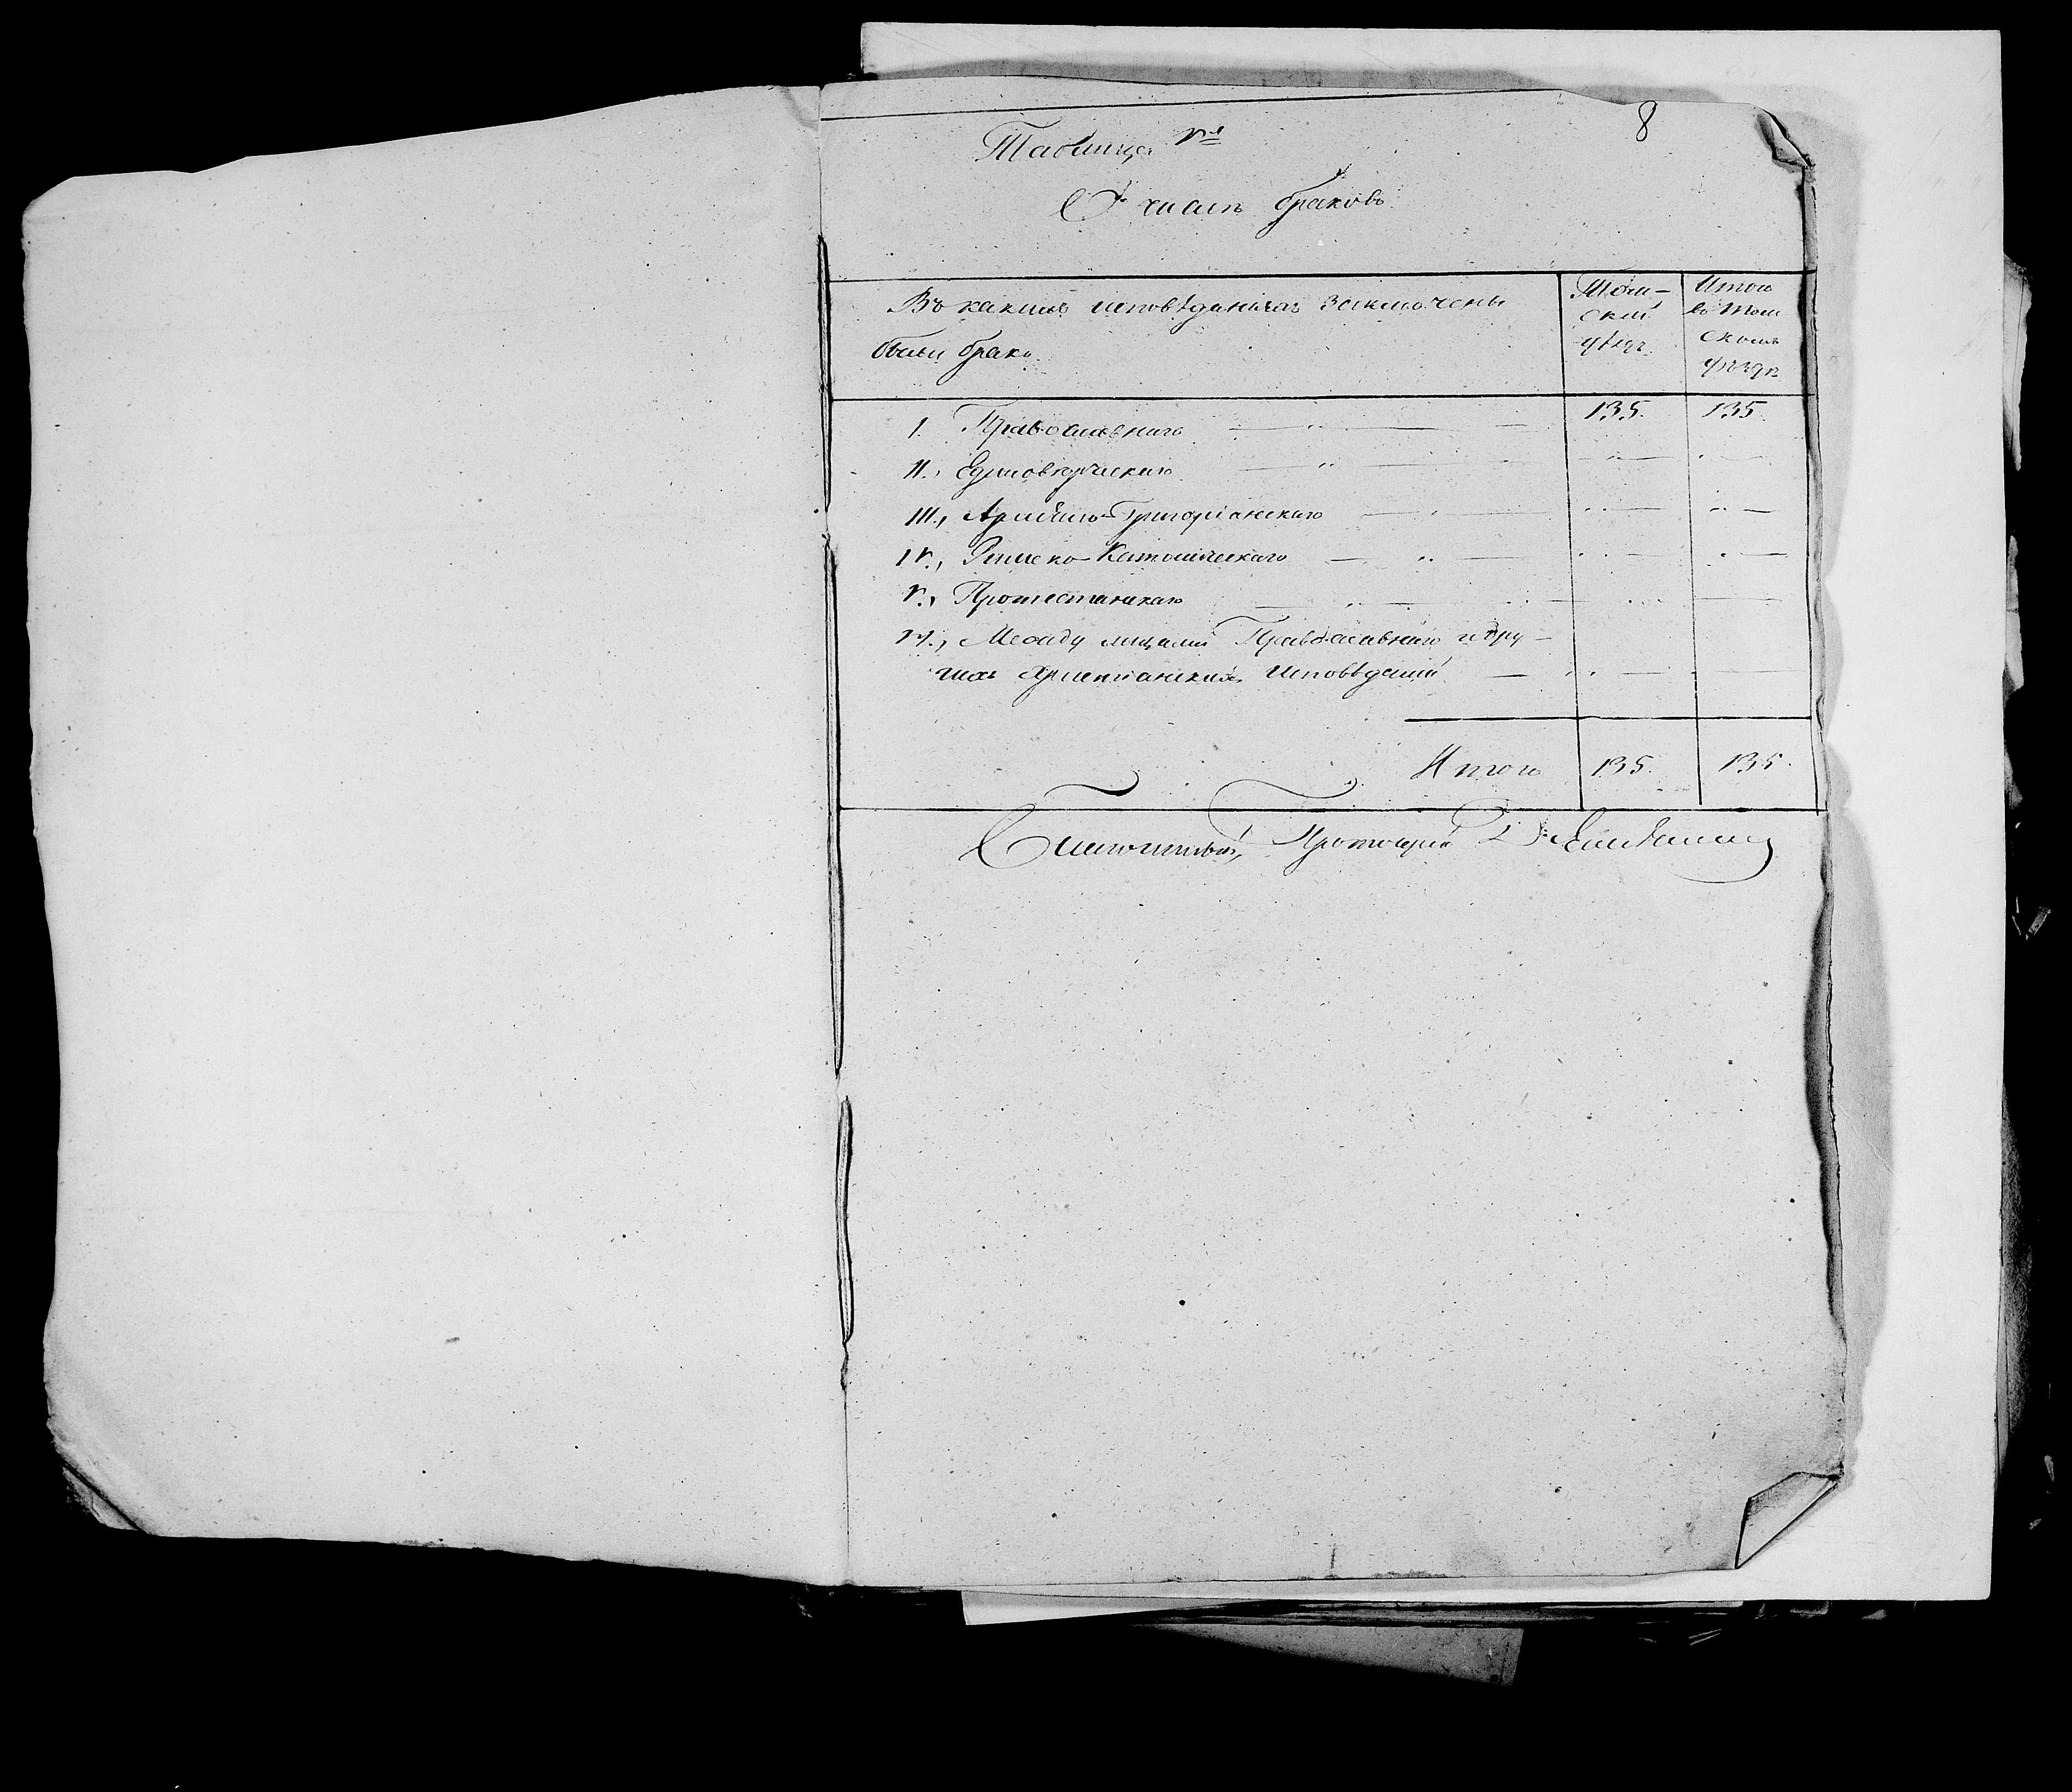 8
Таблица V<sup>я</sup>
О числѣ браковъ.
Въ какихъ исповѣданіяхъ заключены
были браки.
Том-
скій
уѣздъ.
Итого
въ Том
скомъ
уѣздѣ
I. Православнаго 135. 135.
II., Единовѣрческаго
III., Армяно-Григоріанскаго
IV., Римско-Католическаго
V., Протестанскаго
VI., Между лицами Православнаго и дру-
гихъ Христіанскихъ Исповѣданій
Итого 135. 135.
Благочинный, Протоіерей